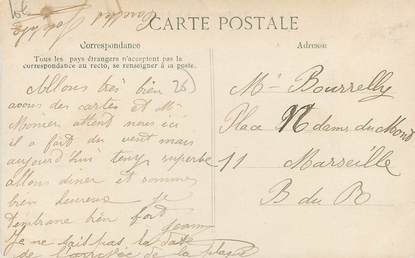 CARTE POSTALE
Correspondance
Tous les pays étrangers n'acceptent pas la
correspondance au recto, se renseigner à la poste.
Adresse
Allons très bien
avons des cartes et Mr
Monier attend nous ici
il a fait du vent mais
aujourd'hui temps superbe
allons diner et sommes
bien heureux je
t'embrasse bien fort
Jeanne
Je ne sais pas la date
de la
Me Bourrelly
Place N dame du Mont
11 Marseille
B du R